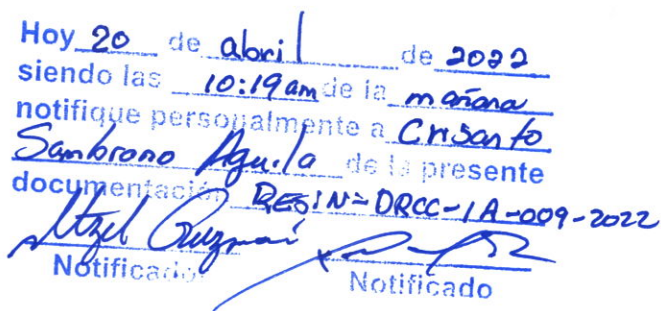 Hoy 20 de abril de 2022
siendo las 10:19 am de la mañana
notifique personalmente a Crisanto
Sambrano Aguila de la presente
documentación RESIN=DRCC-IA-009-2022
Itzel Guzmán
Notificador Notificado